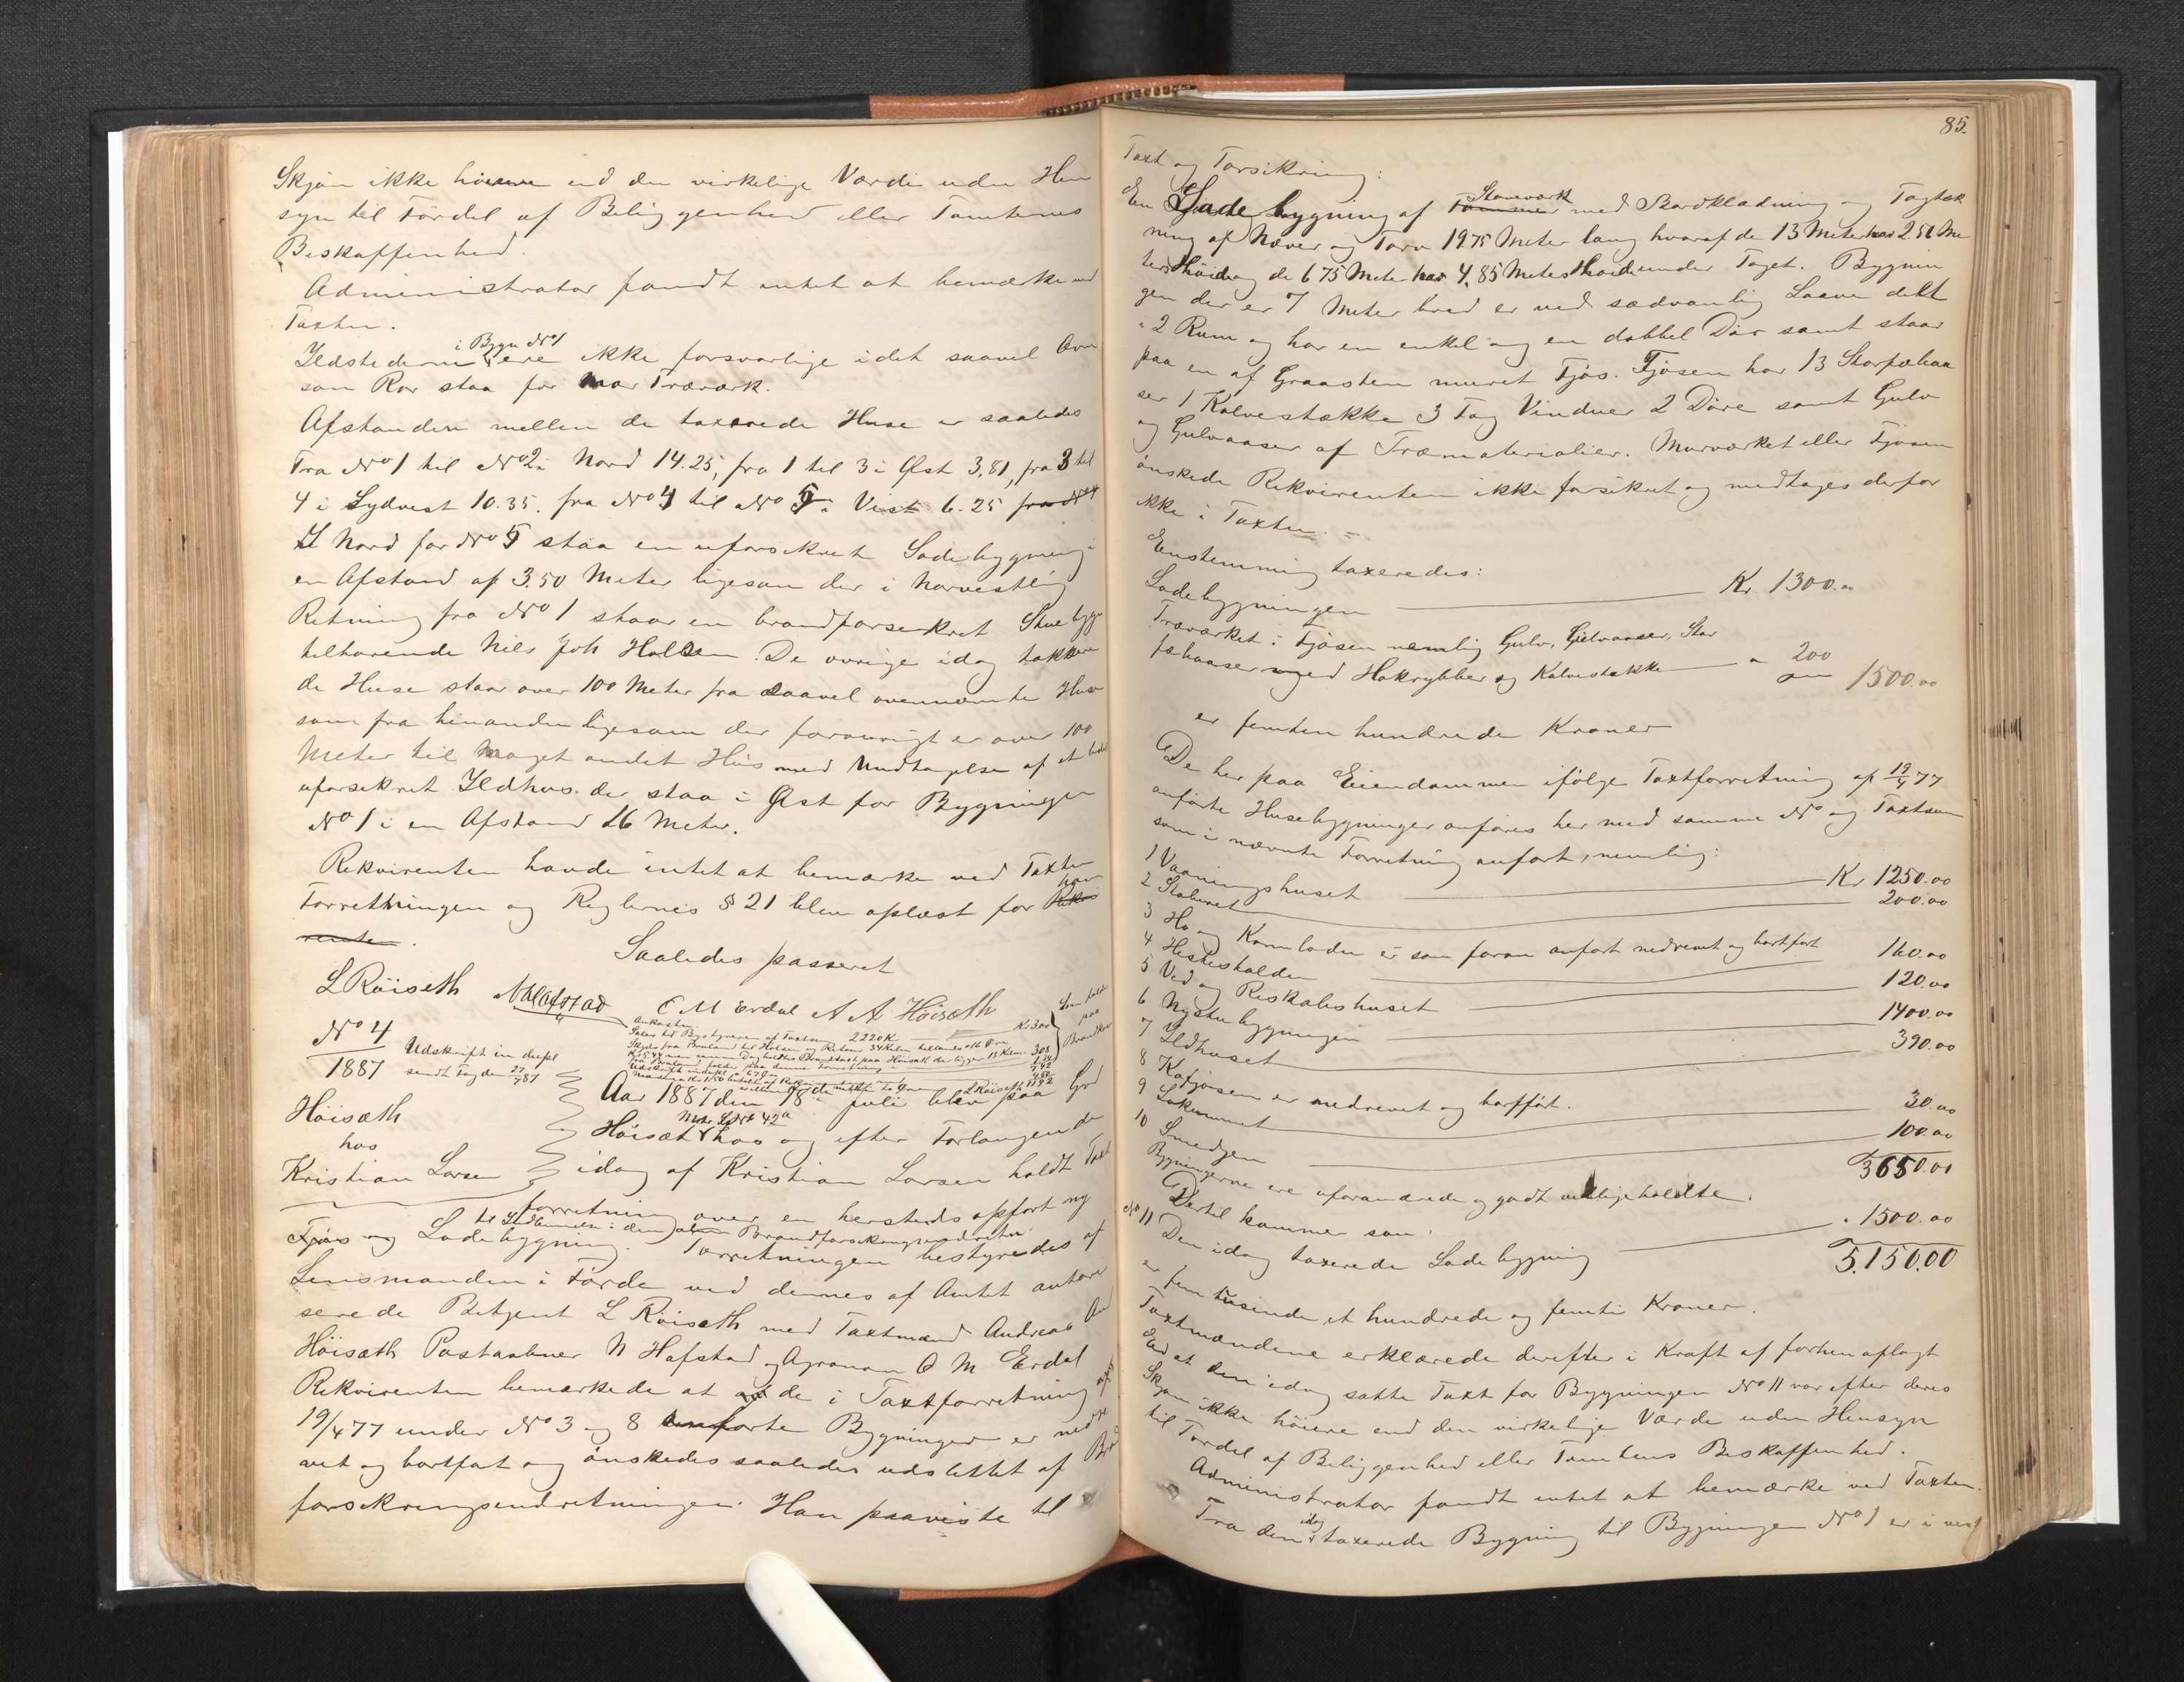 Skjøn ikke høiere end den virkelige Værdi uden Hen
syn til Fördel af Beliggenhed eller Tomternes
Beskaffenhed.
Administrator fandt intet at bemærke ved
Taxten.
i Bygn No 1
Ildstederne ere ikke forsvarlige idet saavel Ovn
som Rör staa for nær Træværk.
Afstanden mellem de taxerede Huse er saaledes
Fra No 1 til No 2 i Nord 14.25, fra 1 til 3 i Øst 3,81, fra 3 til
4 i Sydvest 10.35. fra No 4 til No 5 i Vest 6.25
I Nord for No 5 staa en uforsikret Ladebygning i
en Afstand af 3.50 Meter ligesom der i Norvestlig
Retning fra No 1 staar en brandforsikret Stuebygn
tilhørende Nils Joh Halsen. De øvrige idag takser
de Huse staar over 100 Meter fra saavel ovennævnte Huse
som fra hinanden ligesom der forøvrigt er over 100
Meter til noget andet Hus med Undtagelse af et lidet
uforsikret Ildhus der staa i Øst for Bygningen
No 1 i en Afstand 26 Meter.
Rekvirenten havde intet at bemærke ved Taxten
Forretningen og Reglernes § 21 blev oplæst for ham
Saaledes passeret
L Röiseth N Hafstad O M Erdal A A Höisæth
No 4
1887
Udskrift in dupl
sendt Fog den 27/7 87
Höisæth
hos
Kristian Larsen
Aar 1887 den 18de juli blev paa Grd
Matr LNr 42a
Höisæth hos og efter Forlangende
idag af Kristian Larsen holdt Taxt
forretning over en hersteds opfört ny
til Indlemmelse i den alm Brandforsikringsindretn
Fjøs og Ladebygning. Forretningen bestyredes af
Lensmanden i Förde ved dennes af Amtet autori
serede Betjent L Röiseth med Taxtmænd Andreas An
Höisæth Postaabner N Hafstad og Agronom O M Erdal
Rekvirenten bemærkede at de i Taxtforretning af
19/4 77 under No 3 og 8 anförte Bygninger er nedre
vet og bortfört og ønskedes saaledes udslettet af Bra
forsikringsindretningen. Han paaviste til
85.
Taxt og Forsikring:
Staveværk
En Ladebygning af med Bordklædning og Tagtæk
ning af Næver og Torv 19.75 Meter lang hvoraf de 13 Meter har 2.51 Me
ters Höide og de 6 75 Meter har 4,85 Meters Höide under Taget. Bygnin
gen der er 7 Meter bred er ved sædvanlig Laave delt
i 2 Rum og har en enkel og en dobbel Dör samt staar
paa en af Graasten muret Fjös. Fjösen har 13 Storfæbaa
ser 1 Kalvestække 3 Fag Vinduer 2 Döre samt Gulv
og Gulvaaser af Træmaterialier. Murværket eller Fjösen
önskede Rekvirenten ikke forsikret og medtages derfor
ikke i Taxten.
Eenstemmig taxeredes:
Ladebygningen Kr 1300.00
Træværket i Fjösen nemlig Gulv, Gulvaaser, Stor
fæbaaser med Hokrybber og Kalvestække " 200 1500.00
er femten hundrede Kroner
De her paa Eiendommen ifölge Taxtforretning af 19/4 77
anförte Husebygninger anföres her med samme No og Taxtsum
som i nævnte Forretning anfört, nemlig:
1 Vaaningshuset Kr 1250.00
2 Staburet 200.00
3 Hø og Kornladen er som foran anfört nedrevet og bortfört
4 Hestestalden 160.00
5 Ved og Reskabshuset 120.00
6 Nystubygningen 1400.00
7 Ildhuset 390.00
8 Kofjösen er nedrevet og bortfört.
9 Lokummet 30.00
10 Smedjen 100.00
3650.00
Bygningerne ere uforandrede og godt vedligeholdte.
Dertil kommer som:
No 11 Den idag taxerede Ladebygning " 1500.00
5.150.00
er fem tusinde et hundrede og femti Kroner.
Taxtmændene erklærede derefter i Kraft af forhen aflagt
Eed at den idag satte Taxt for Bygningen No 11 var efter deres
Skjøn ikke høiere end den virkelige Værde uden Hensyn
til Fordel af Beliggenhed eller Tomtens Beskaffenhed.
Administrator fandt intet at bemærke ved Taxten.
Fra den idag taxerede Bygning til Bygningen No 1 er i vest